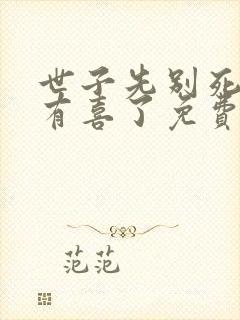 世子先别死
有喜了免费
范范